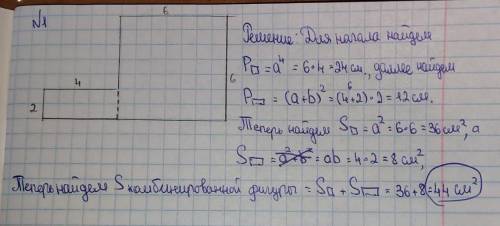 N1
6
4
2
6
Решение: Для начала найдем
P□ = a⁴ = 6·4 = 24 см, даллее найдем
P▭ = (a+b)² = (4+2)·2 = 12 см.
6
Теперь найдем S□ = a² = 6·6 = 36 см², а
S▭ = a²+b² = ab = 4·2 = 8 см²,
Теперь найдем S комбинированной фигуры = S□ + S▭ = 36+8 = 44 см²